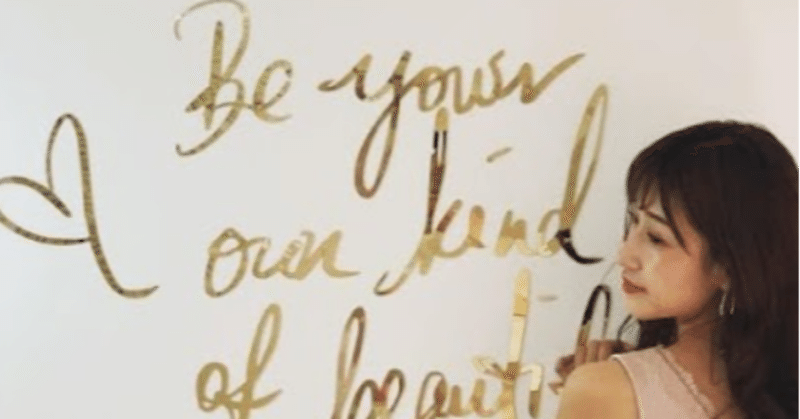 Be your
own kind
of beauti